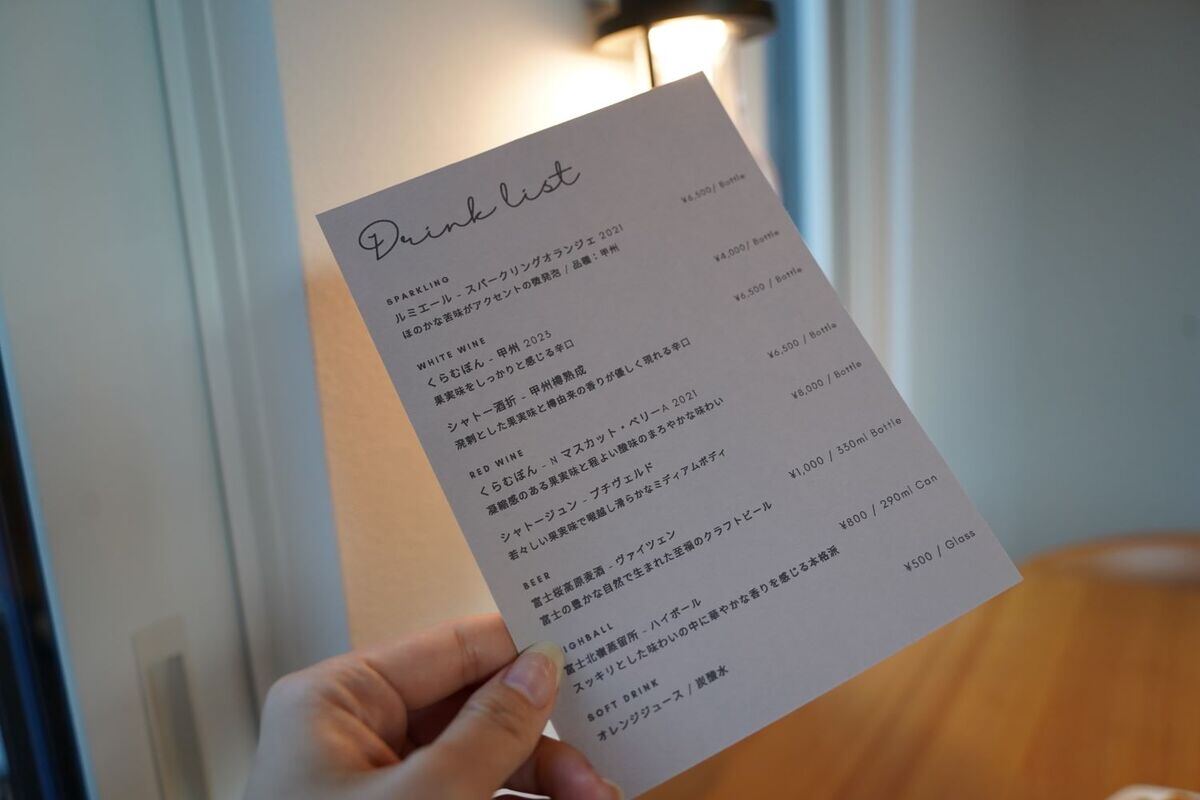 Drink list
SPARKLING
ルミエール - スパークリングオランジェ 2021 ¥6,500/ Bottle
ほのかな苦味がアクセントの微発泡 / 品種：甲州
WHITE WINE
くらむぼん - 甲州 2023 ¥4,000/ Bottle
果実味をしっかりと感じる辛口
シャトー酒折 - 甲州樽熟成 ¥6,500 / Bottle
溌剌とした果実味と樽由来の香りが優しく現れる辛口
RED WINE
くらむぼん - N マスカット・ベリーA 2021 ¥6,500 / Bottle
凝縮感のある果実味と程よい酸味のまろやかな味わい
シャトージュン - プチヴェルド ¥8,000 / Bottle
若々しい果実味で喉越し滑らかなミディアムボディ
BEER
富士桜高原麦酒 - ヴァイツェン ¥1,000 / 330ml Bottle
富士の豊かな自然で生まれた至福のクラフトビール
IGHBALL
富士北嶺蒸留所 - ハイボール ¥800 / 290ml Can
スッキリとした味わいの中に華やかな香りを感じる本格派
SOFT DRINK
オレンジジュース / 炭酸水 ¥500 / Glass